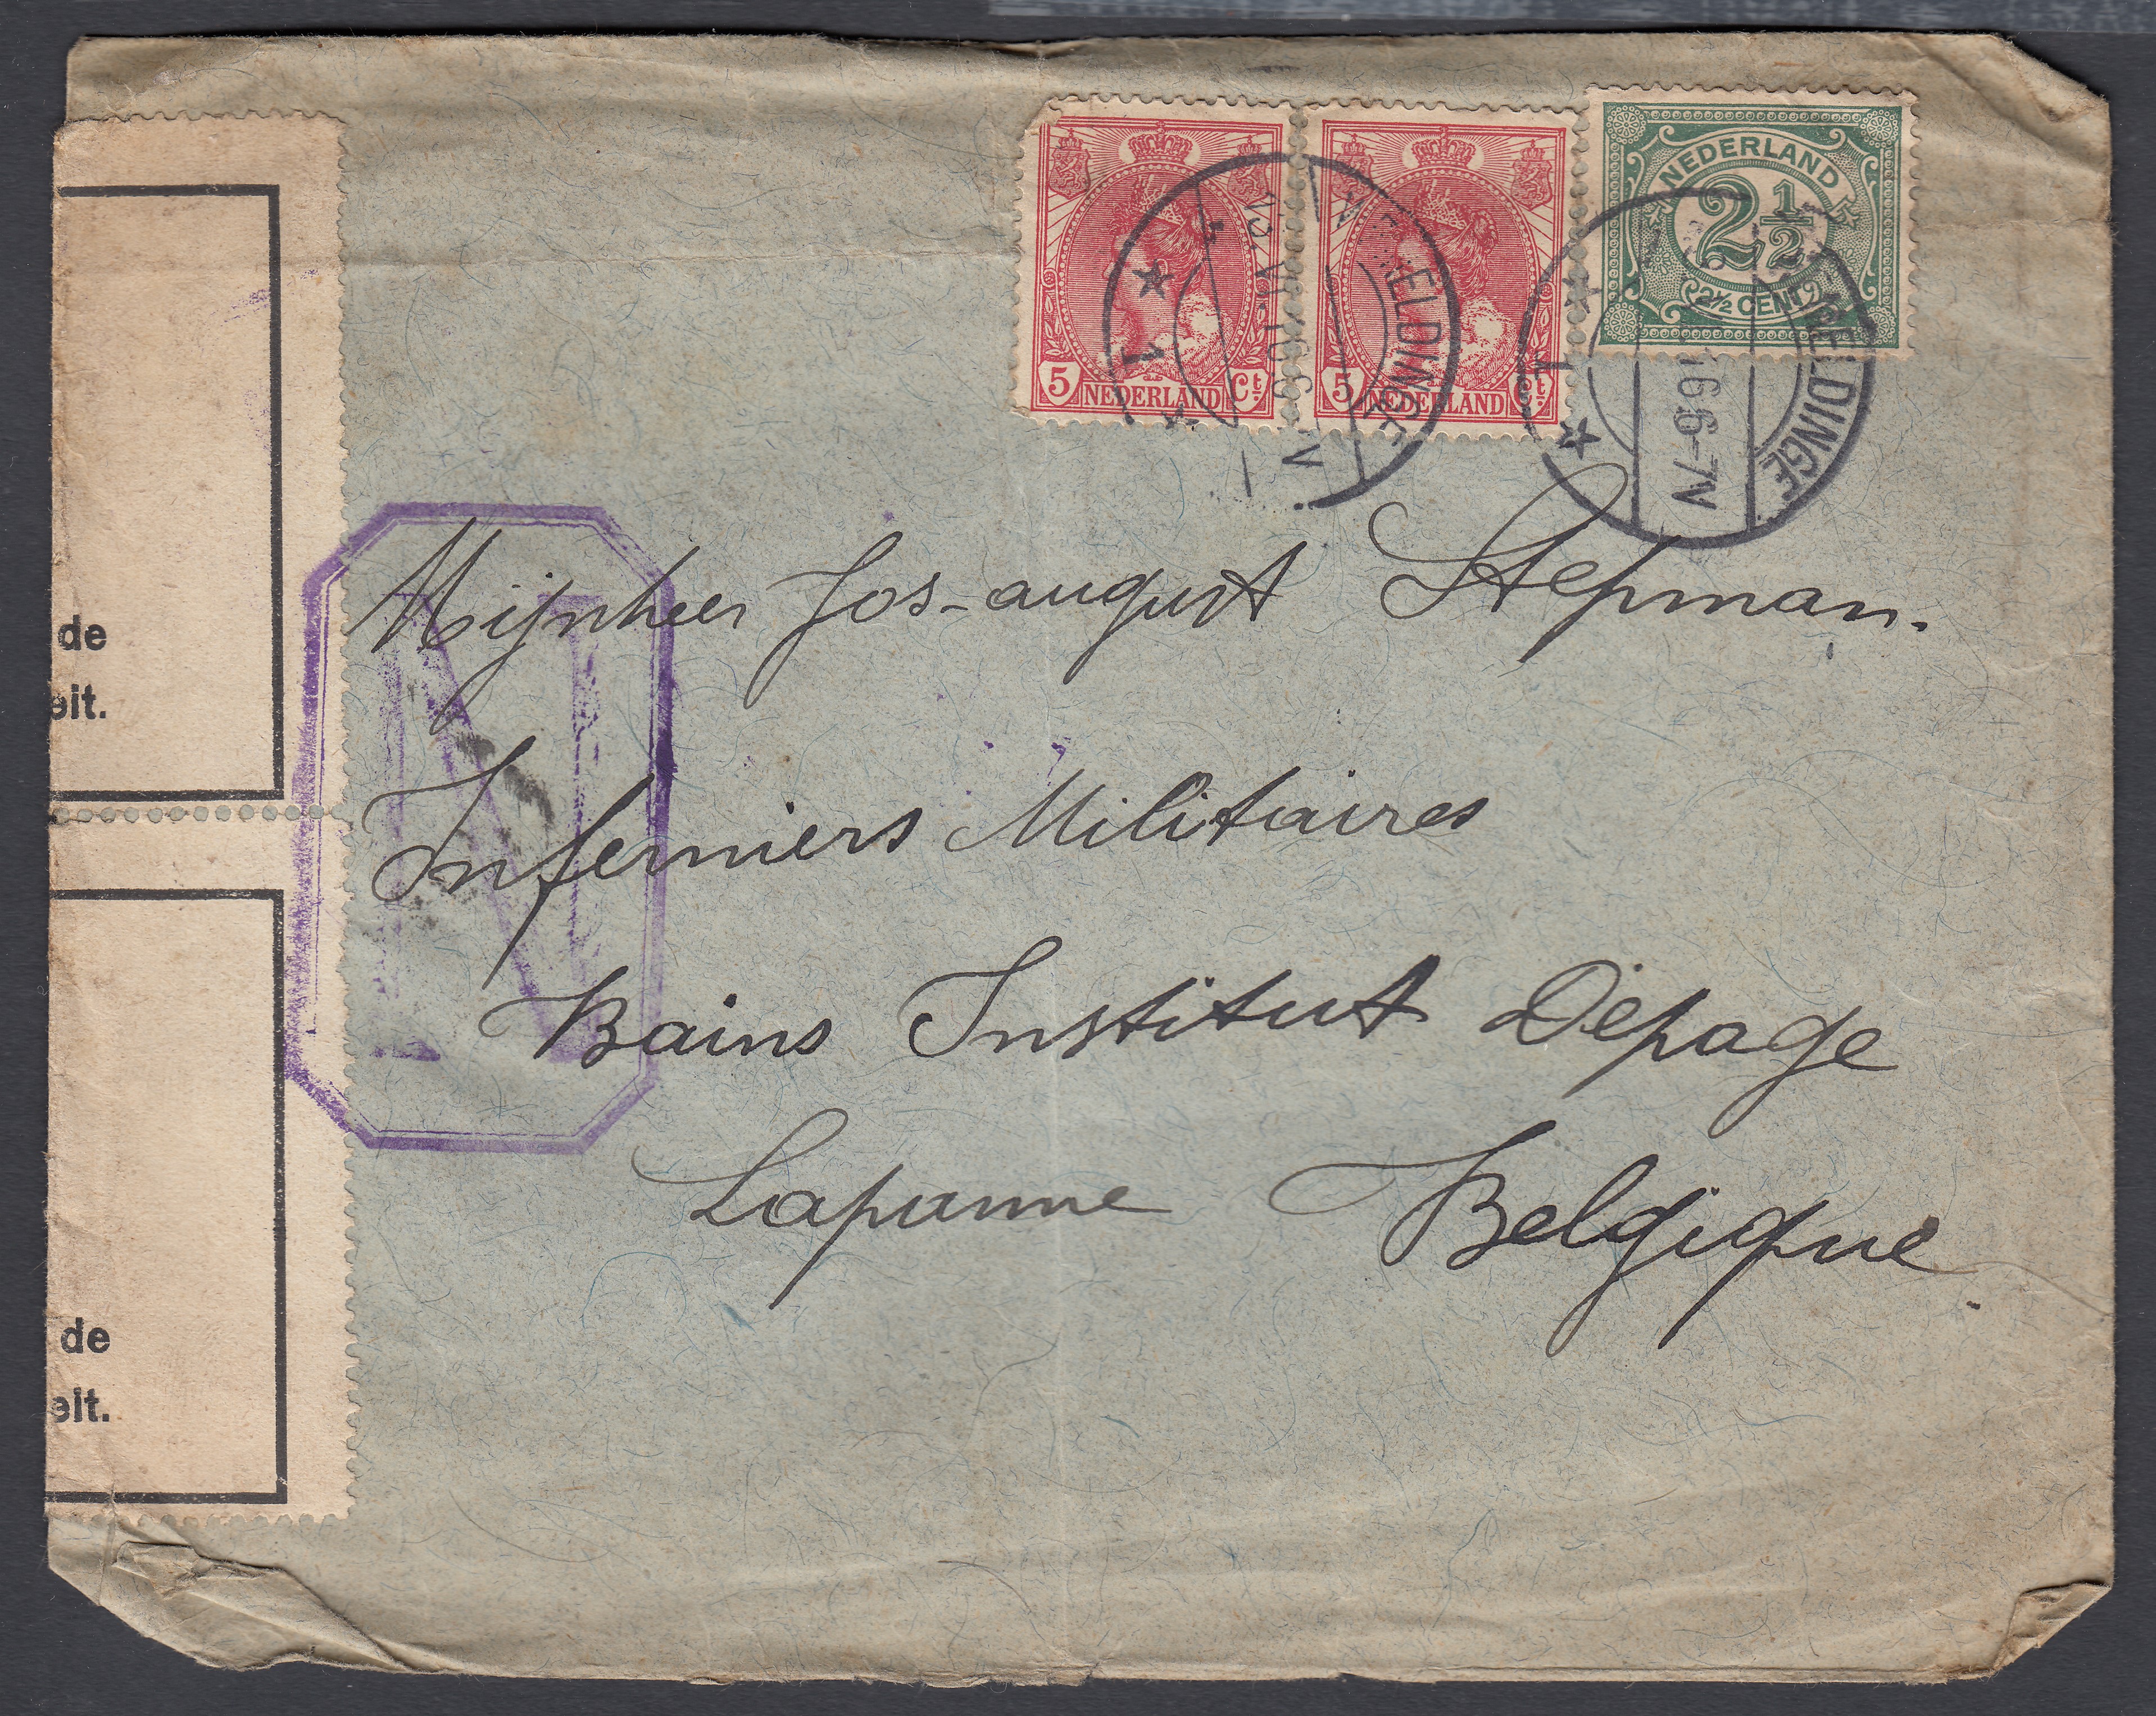 NEDERLAND
2 1/2
2½ CENT
5 NEDERLAND Ct.
5 NEDERLAND Ct.
1
13 VI 16 6
1
16 6-7V
de
eit.
N
Mijnheer Jos-august Stepman.
Infermiers Militaires
Bains Institut Depage
Lapanne Belgique
de
eit.